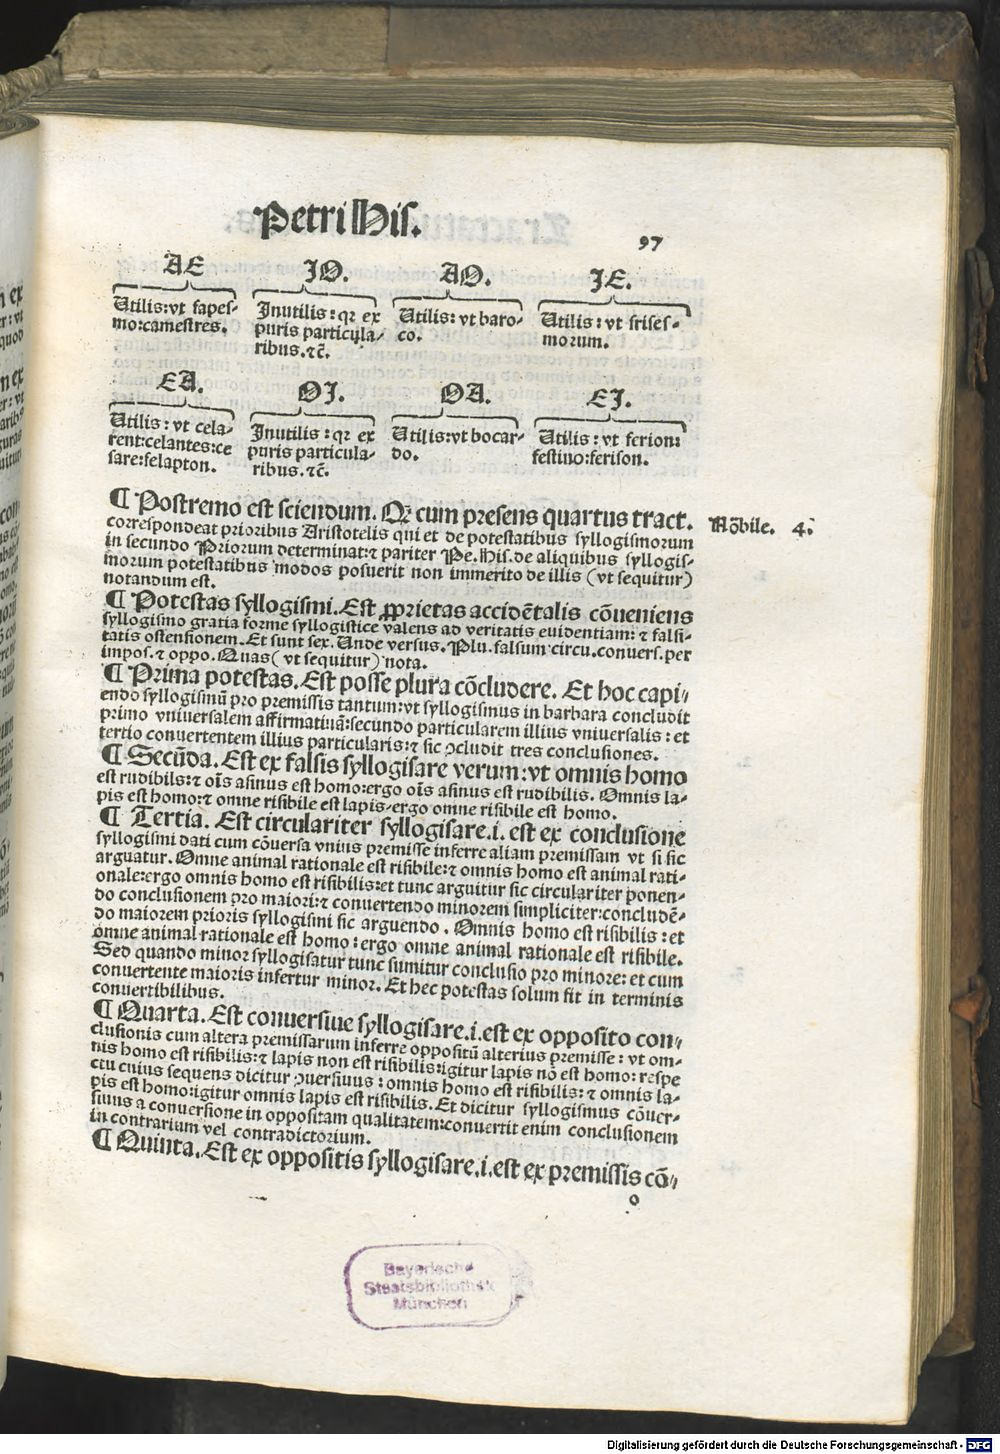 Petri His.
97
AE
IO.
AO.
IE.
Utilis: vt fapes-
mo: camestres.
Inutilis: qꝛ ex
puris particula-
ribus. ⁊c̄.
Utilis: vt baro-
co.
Utilis: vt frises-
morum.
EA.
OI.
OA.
EI.
Utilis: vt cela-
rent: celantes: ce
sare: felapton.
Inutilis: qꝛ ex
puris particula-
ribus. ⁊c̄.
Utilis: vt bocar-
do.
Utilis: vt ferion:
festino: ferison.
¶ Postremo est sciendum. Qꝛ cum presens quartus tract.
Nōbile. 4.
correspondeat prioribus Aristotelis qui et de potestatibus syllogismorum
in secundo Priorum determinat: ⁊ pariter Pe. His. de aliquibus syllogis-
morum potestatibus modos posuerit non immerito de illis (vt sequitur)
notandum est.
¶ Potestas syllogismi. Est ꝓprietas accidētalis cōueniens
syllogismo gratia forme syllogistice valens ad veritatis euidentiam: ⁊ falsi-
tatis ostensionem. Et sunt sex. Unde versus. Plu. falsum circu. conuers. per
impos. ⁊ oppo. Quas (vt sequitur) nota.
¶ Prima potestas. Est posse plura cōcludere. Et hoc capi-
endo syllogismū pro premissis tantum: vt syllogismus in barbara concludit
primo vniuersalem affirmatiuā: secundo particularem illius vniuersalis: et
tertio conuertentem illius particularis: ⁊ sic ꝯcludit tres conclusiones.
¶ Secūda. Est ex falsis syllogisare verum: vt omnis homo
est rudibilis: ⁊ oīs asinus est homo: ergo oīs asinus est rudibilis. Omnis la-
pis est homo: ⁊ omne risibile est lapis: ergo omne risibile est homo.
¶ Tertia. Est circulariter syllogisare .i. est ex conclusione
syllogismi dati cum cōuersa vnius premisse inferre aliam premissam vt si sic
arguatur. Omne animal rationale est risibile: ⁊ omnis homo est animal rati-
onale: ergo omnis homo est risibilis: et tunc arguitur sic circulariter ponen-
do conclusionem pro maiori: ⁊ conuertendo minorem simpliciter: concludē-
do maiorem prioris syllogismi sic arguendo. Omnis homo est risibilis: et
omne animal rationale est homo: ergo omne animal rationale est risibile.
Sed quando minor syllogisatur tunc sumitur conclusio pro minore: et cum
conuertente maioris infertur minor. Et hec potestas solum fit in terminis
conuertibilibus.
¶ Quarta. Est conuersiue syllogisare .i. est ex opposito con-
clusionis cum altera premissarum inferre oppositū alterius premisse: vt om-
nis homo est risibilis: ⁊ lapis non est risibilis: igitur lapis nō est homo: respe
ctu cuius sequens dicitur ꝯuersiuus: omnis homo est risibilis: ⁊ omnis la-
pis est homo: igitur omnis lapis est risibilis. Et dicitur syllogismus cōuer-
siuus a conuersione in oppositam qualitatem: conuertit enim conclusionem
in contrarium vel contradictorium.
¶ Quinta. Est ex oppositis syllogisare .i. est ex premissis cō-
o
Bayerische
Staatsbibliothek
München
Digitalisierung gefördert durch die Deutsche Forschungsgemeinschaft - DFG